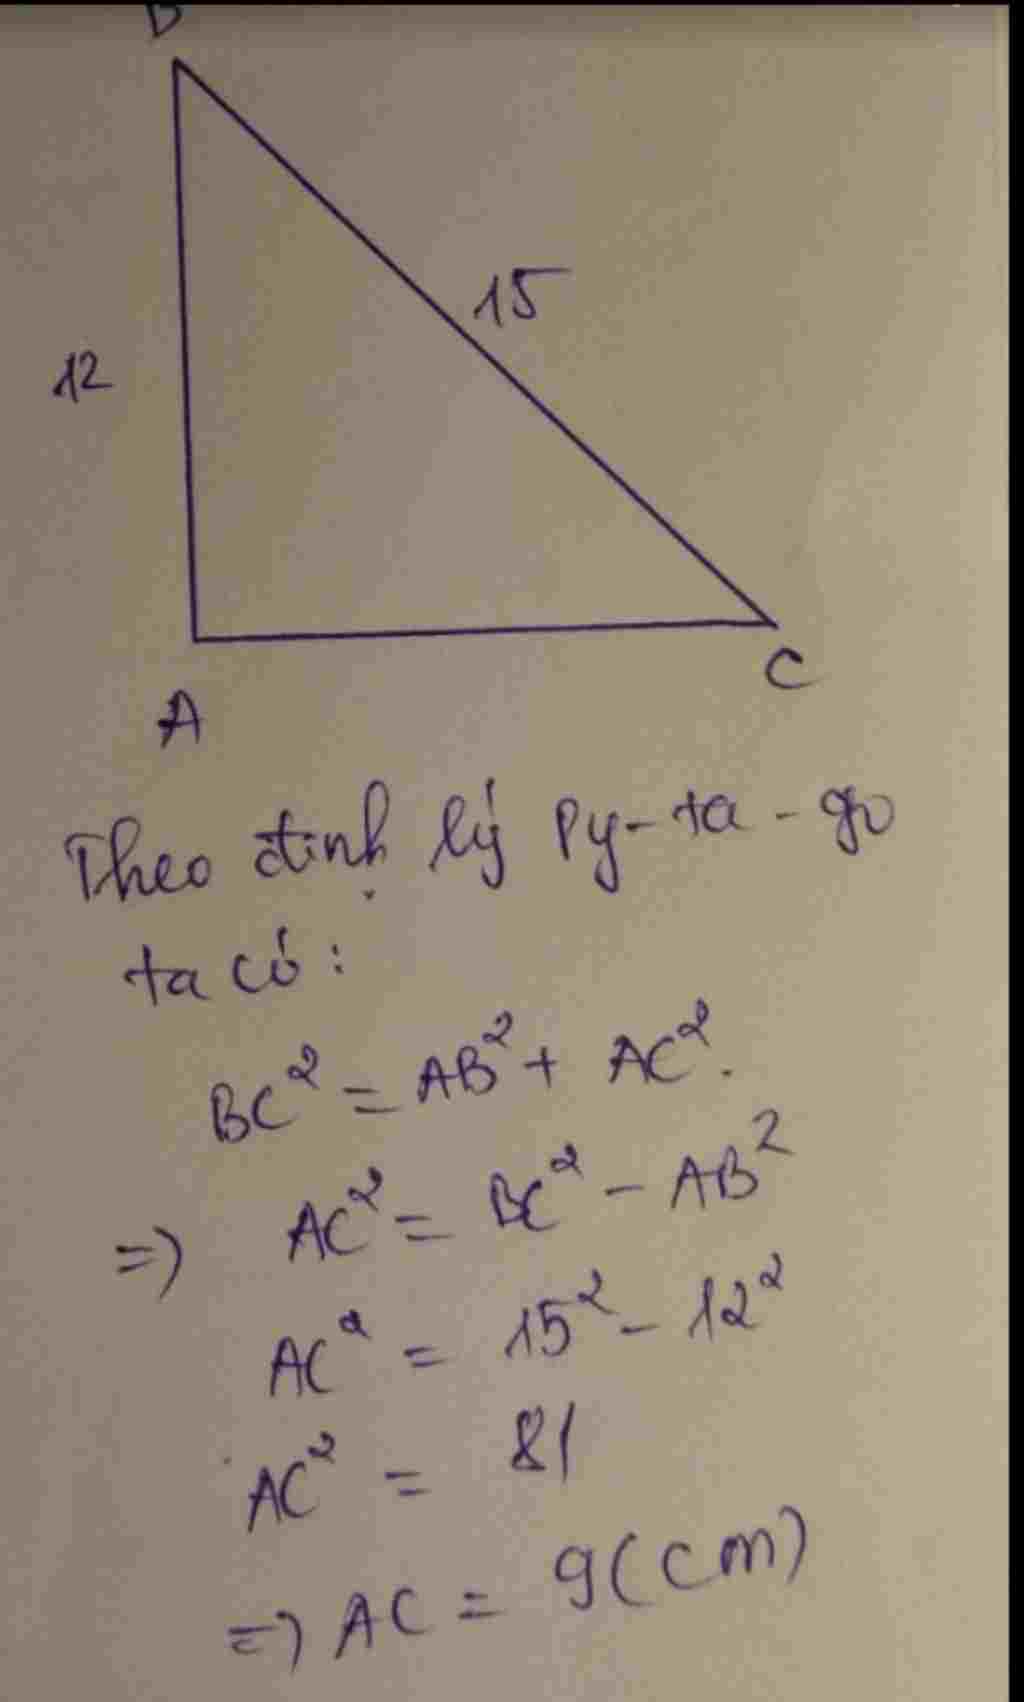 B
15
12
A
C
Theo định lý Py-ta-go
ta có:
BC² = AB² + AC².
=> AC² = BC² - AB²
AC² = 15² - 12²
AC² = 81
=> AC = 9(cm)